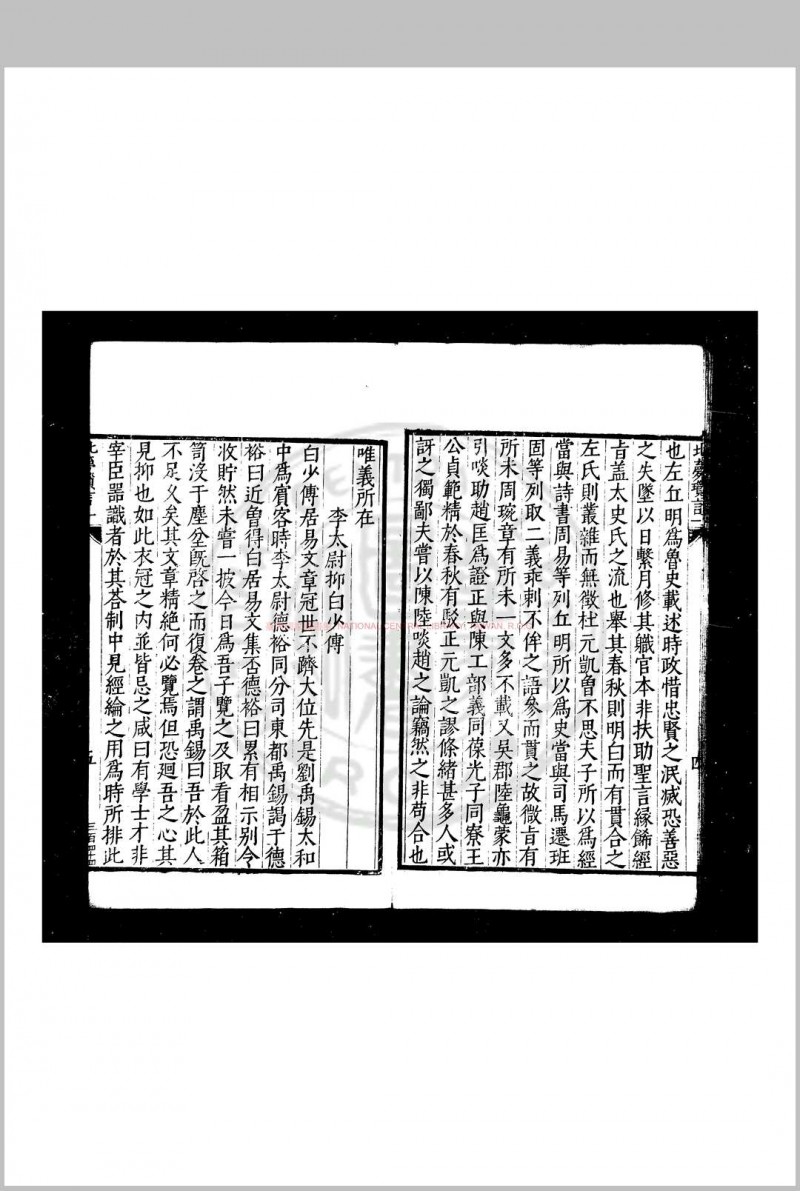 也左丘明爲魯史載述時政惜忠賢之泯滅恐善惡
之失墜以日繫月修其職官本非扶助聖言緣飾經
旨盖太史氏之流也舉其春秋則明白而有貫合之
左氏則叢雜而無徵杜元凱曾不思夫子所以爲經
當與詩書周易等列丘明所以爲史當與司馬遷班
固等列取二義乖剌不侔之語參而貫之故微旨有
所未周琬章有所未一文多不載又吳郡陸龜蒙亦
引啖助趙匡爲證正與陳工部義同葆光子同寮王
公貞範精於春秋有駁正元凱之謬條緒甚多人或
訝之獨鄙夫嘗以陳陸啖趙之論竊然之非苟合也
唯義所在
李太尉抑白少傅
白少傅居易文章冠世不躋大位先是劉禹錫太和
中爲賓客時李太尉德裕同分司東都禹錫謁于德
裕曰近曾得白居易文集否德裕曰累有相示别令
收貯然未嘗一披今日爲吾子覽之及取看盈其箱
笥沒于塵坌旣啓之而復卷之謂禹錫曰吾於此人
不足久矣其文章精絶何必覽焉但恐廻吾之心其
見抑也如此衣冠之内並皆忌之咸曰有學士才非
宰臣器識者於其荅制中見經綸之用爲時所排此
五